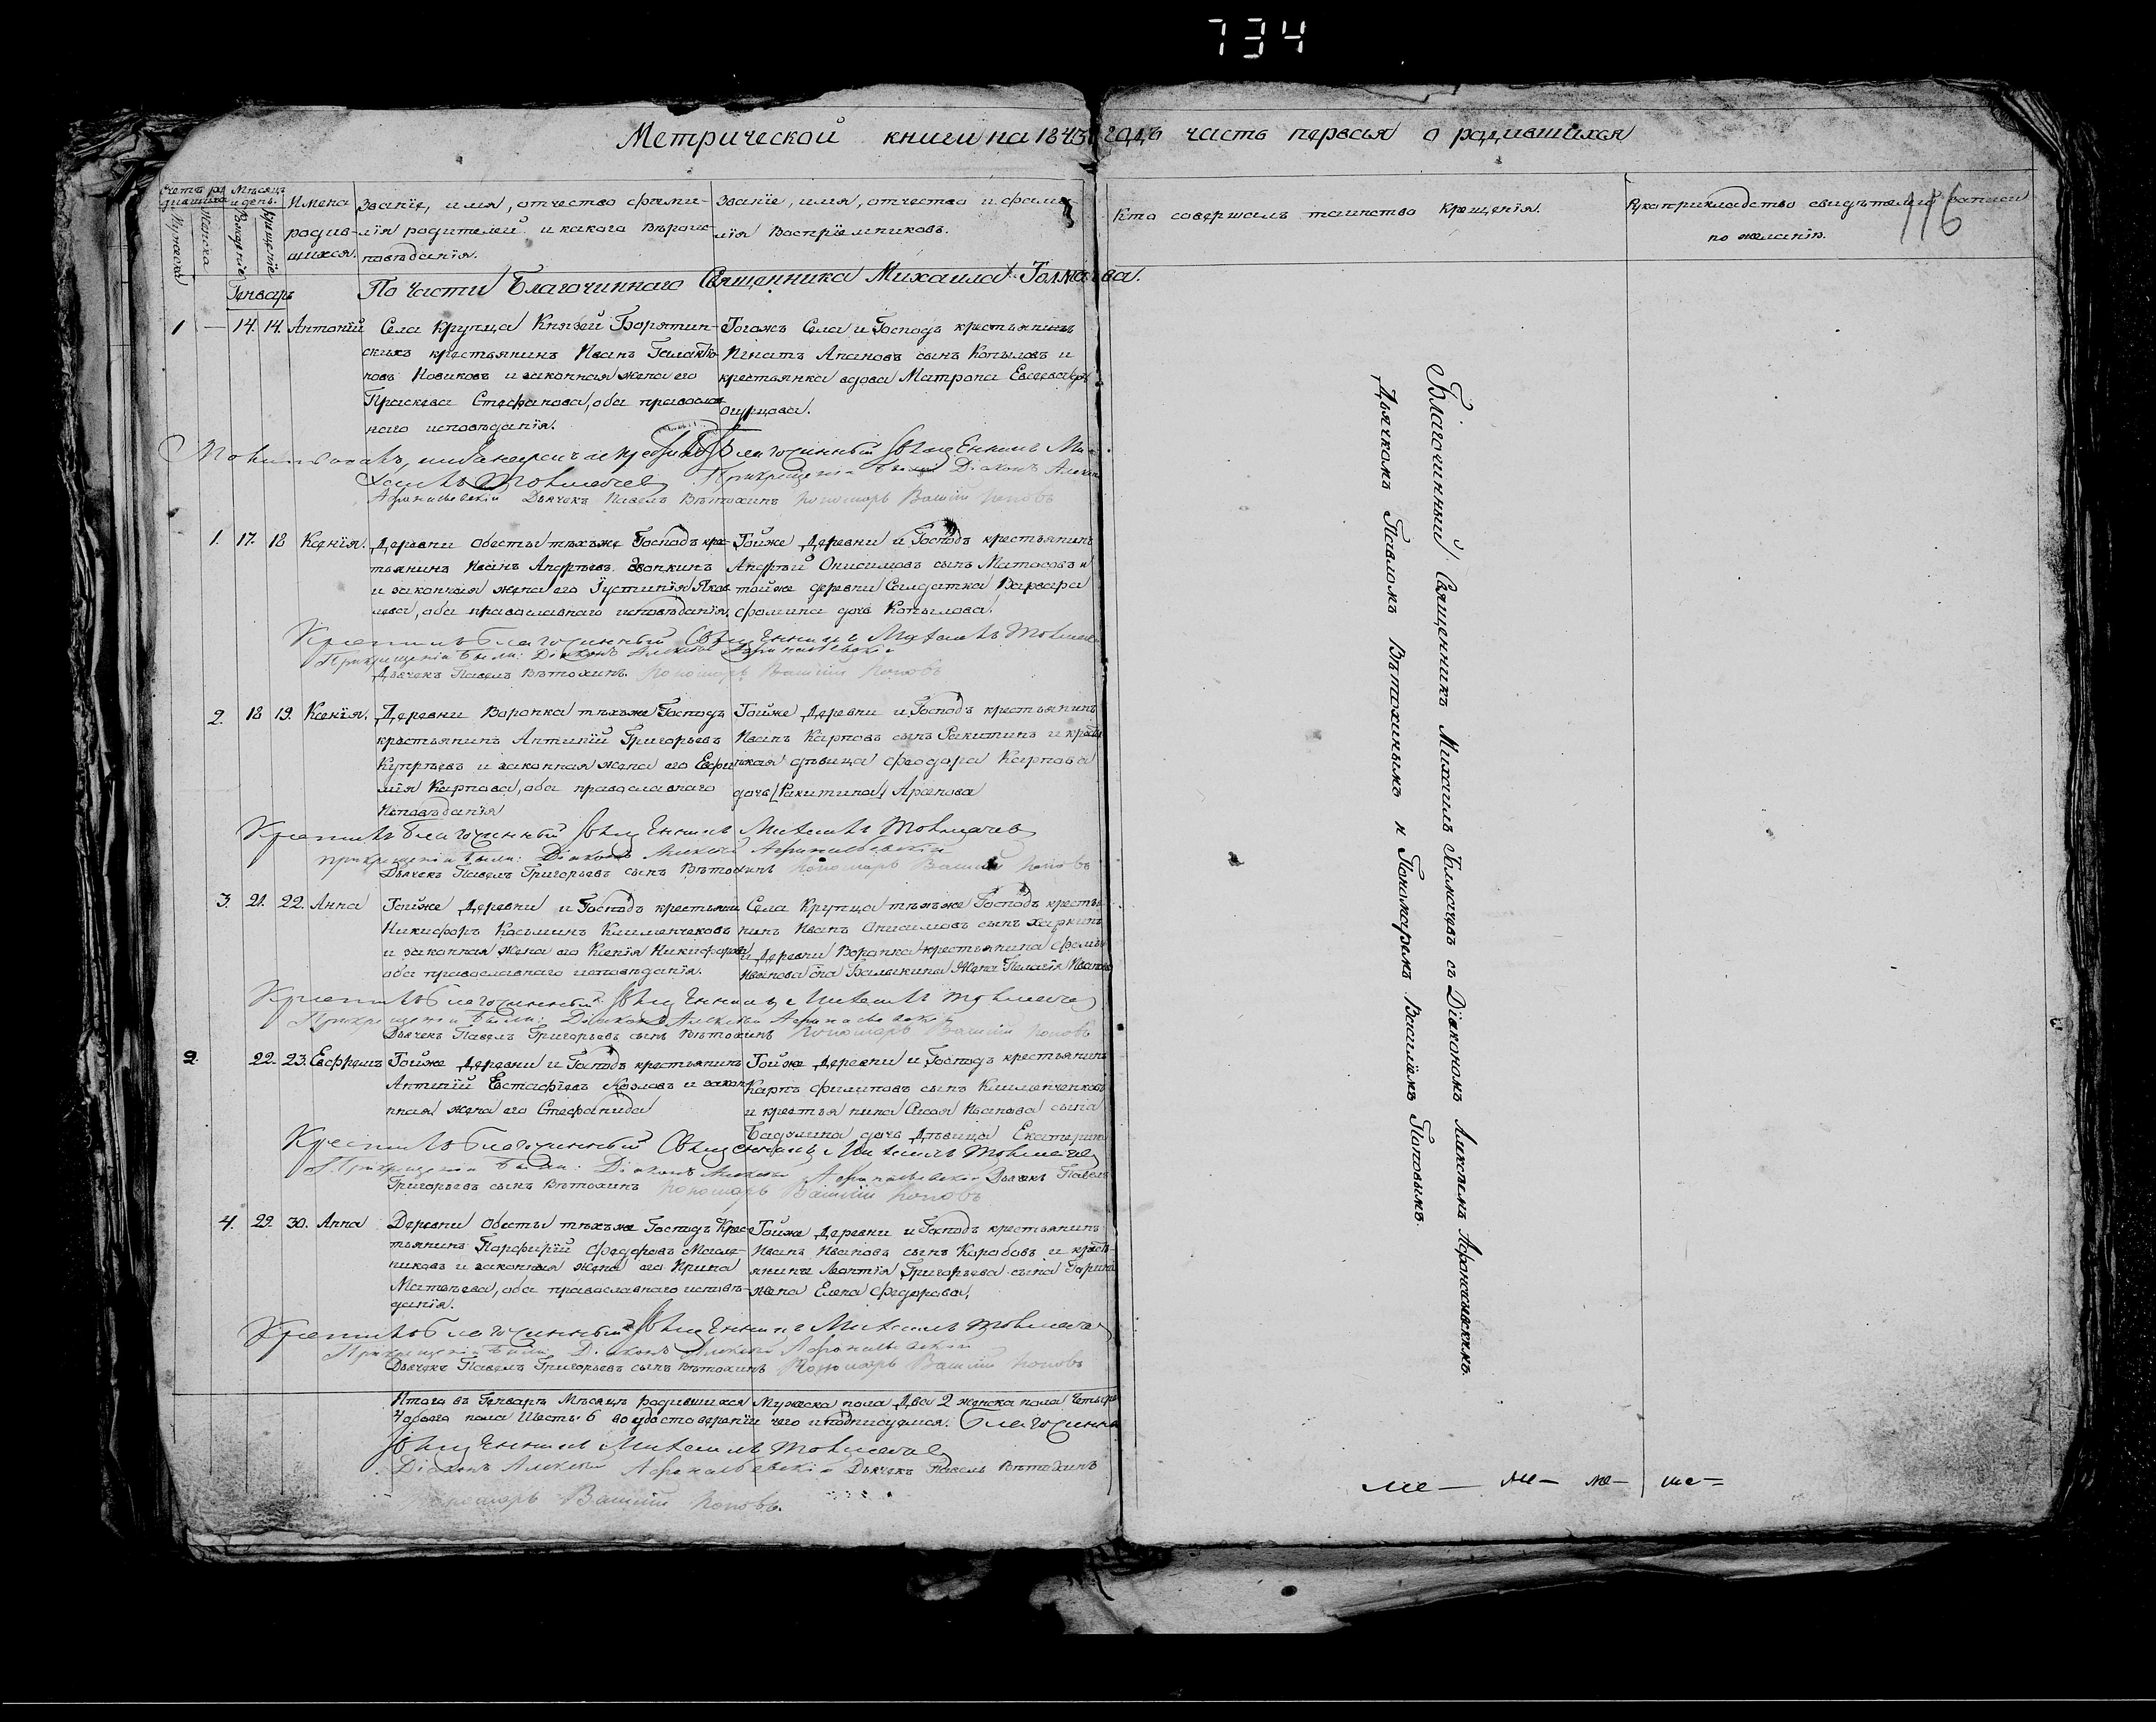 734
Метрической книги на 1843 годъ часть первая о родившихся
116
Счетъ родившихся
Мужска
Женска
Мѣсяцъ и день.
Рожденіе
Крещеніе
Имена родившихся.
Званіе, имя, отчество фамилія родителей и какого вѣроисповѣданія.
Званіе, имя, отчество и фамилія Воспріемниковъ.
Кто совершалъ таинство Крещенія.
Рукоприкладство свидѣтелей записи
по желанію.
Генварь
По части Благочиннаго Священника Михаила Толмачева.
1 — 14. 14. Антоній
Села Крупца Князей Борятин-
скихъ крестьянинъ Иванъ Галактіо-
новъ Новиковъ и законная жена его
Праскева Стефанова, оба православ-
наго исповѣданія.
Тогожъ Села и Господъ крестьянинъ
Игнатъ сынъ Копыловъ и
крестьянка вдова Матрона Евсеева
Благочинный Священникъ Ми-
хаилъ Толмачевъ При крещеніи были Діаконъ Алексѣй
Афанасьевскій Дьячекъ Павелъ Вѣтохинъ Пономарь Василій Поповъ
1. 17. 18 Ксенія.
Деревни Обесты тѣхъже Господъ крес-
тьянинъ Иванъ Андрѣевъ
и законная жена его Іустинія Яков-
лева, оба православнаго исповѣданія,
Тойже Деревни и Господъ крестьянинъ
Андрѣй Онисимовъ сынъ и
тойже деревни Солдатка Варвара
Фомина дочь Копылова.
Крестилъ Благочинный Священникъ Михаилъ Толмачевъ
При крещеніи были: Діаконъ Алексѣй Афанасьевскій
Дьячекъ Павелъ Вѣтохинъ. Пономарь Василій Поповъ
2. 18 19. Ксенія.
Деревни Воронка тѣхъже Господъ
крестьянинъ Антипій Григорьевъ
Купрѣевъ и законная жена его Евфи-
мія Карпова, оба православнаго
Исповѣданія
Тойже Деревни и Господъ крестьянинъ
Иванъ Карповъ сынъ Ракитинъ и кресть-
нкая дѣвица Феодора Карпова
дочь [Ракитина]
Крестилъ Благочинный Священникъ Михаилъ Толмачевъ
При крещеніи были: Діаконъ Алексѣй Афанасьевскій
Дьячекъ Павелъ Григорьевъ сынъ Вѣтохинъ Пономарь Василій Поповъ
3. 21. 22. Анна
Тойже Деревни и Господъ крестьянин
Никифоръ Косьминъ Клименчековъ
и законная жена его Ксенія Никифорова
оба православнаго исповѣданія.
Села Крупца тѣхъже Господъ кресть-
нинъ Иванъ Онисимовъ сынъ Харкинъ
и Деревни Воронка крестьянина
Иванова сна Балыкина Жена Пелагія Иванова
Крестилъ Благочинный Священникъ Михаилъ Толмачевъ
При крещеніи были: Діаконъ Алексѣй Афанасьевскій
Дьячекъ Павелъ Григорьевъ сынъ Вѣтохинъ Пономарь Василій Поповъ
2. 22. 23. Евфремъ
Тойже Деревни и Господъ крестьянинъ
Антипій Евстафіевъ Козловъ и закон-
нная жена его Стефанида
Тойже Деревни и Господъ крестьянинъ
Карпъ Филиповъ сынъ Клименченковъ
и крестьянина Иванова сына
Бадулина дочь Дѣвица Екатерина
Крестилъ Благочинный Священникъ Михаилъ Толмачевъ
При крещеніи были: Діаконъ Алексѣй Афанасьевскій Дьячекъ Павелъ
Григорьевъ сынъ Вѣтохинъ Пономарь Василій Поповъ
4. 29. 30. Анна
Деревни Обесты тѣхъже Господъ Крес-
тьянинъ Порфирій Федоровъ Масле-
никовъ и законная жена его Ирина
Матвѣева, оба православнаго исповѣ-
данія.
Тойже Деревни и Господъ крестьянинъ
Иванъ Ивановъ сынъ Коробовъ и кресть-
янина Леонтія Григорьева сына
жена Елена Федорова,
Крестилъ Благочинный Священникъ Михаилъ Толмачевъ
При крещеніи были: Діаконъ Алексѣй Афанасьевскій
Дьячекъ Павелъ Григорьевъ сынъ Вѣтохинъ Пономарь Василій Поповъ
Итого въ Генварѣ Мѣсяцѣ родившихся Мужеска пола Два 2 женска пола Четыре
4 обоего пола Шесть 6 во удостовереніи чего и подписуемся. Благочинный
Священникъ Михаилъ Толмачевъ
Діаконъ Алексѣй Афанасьевскій Дьячекъ Павелъ Вѣтохинъ
Пономарь Василій Поповъ.
Благочинный Священникъ Михаилъ Толмачевъ съ Діакономъ Алексѣемъ Афанасьевскимъ
Дьячкомъ Павломъ Вѣтохинымъ и Пономаремъ Василіемъ Поповымъ.